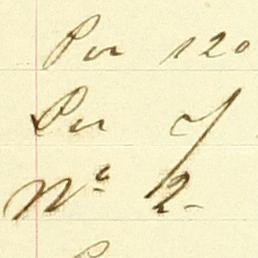 Per 120
Per
No 2.